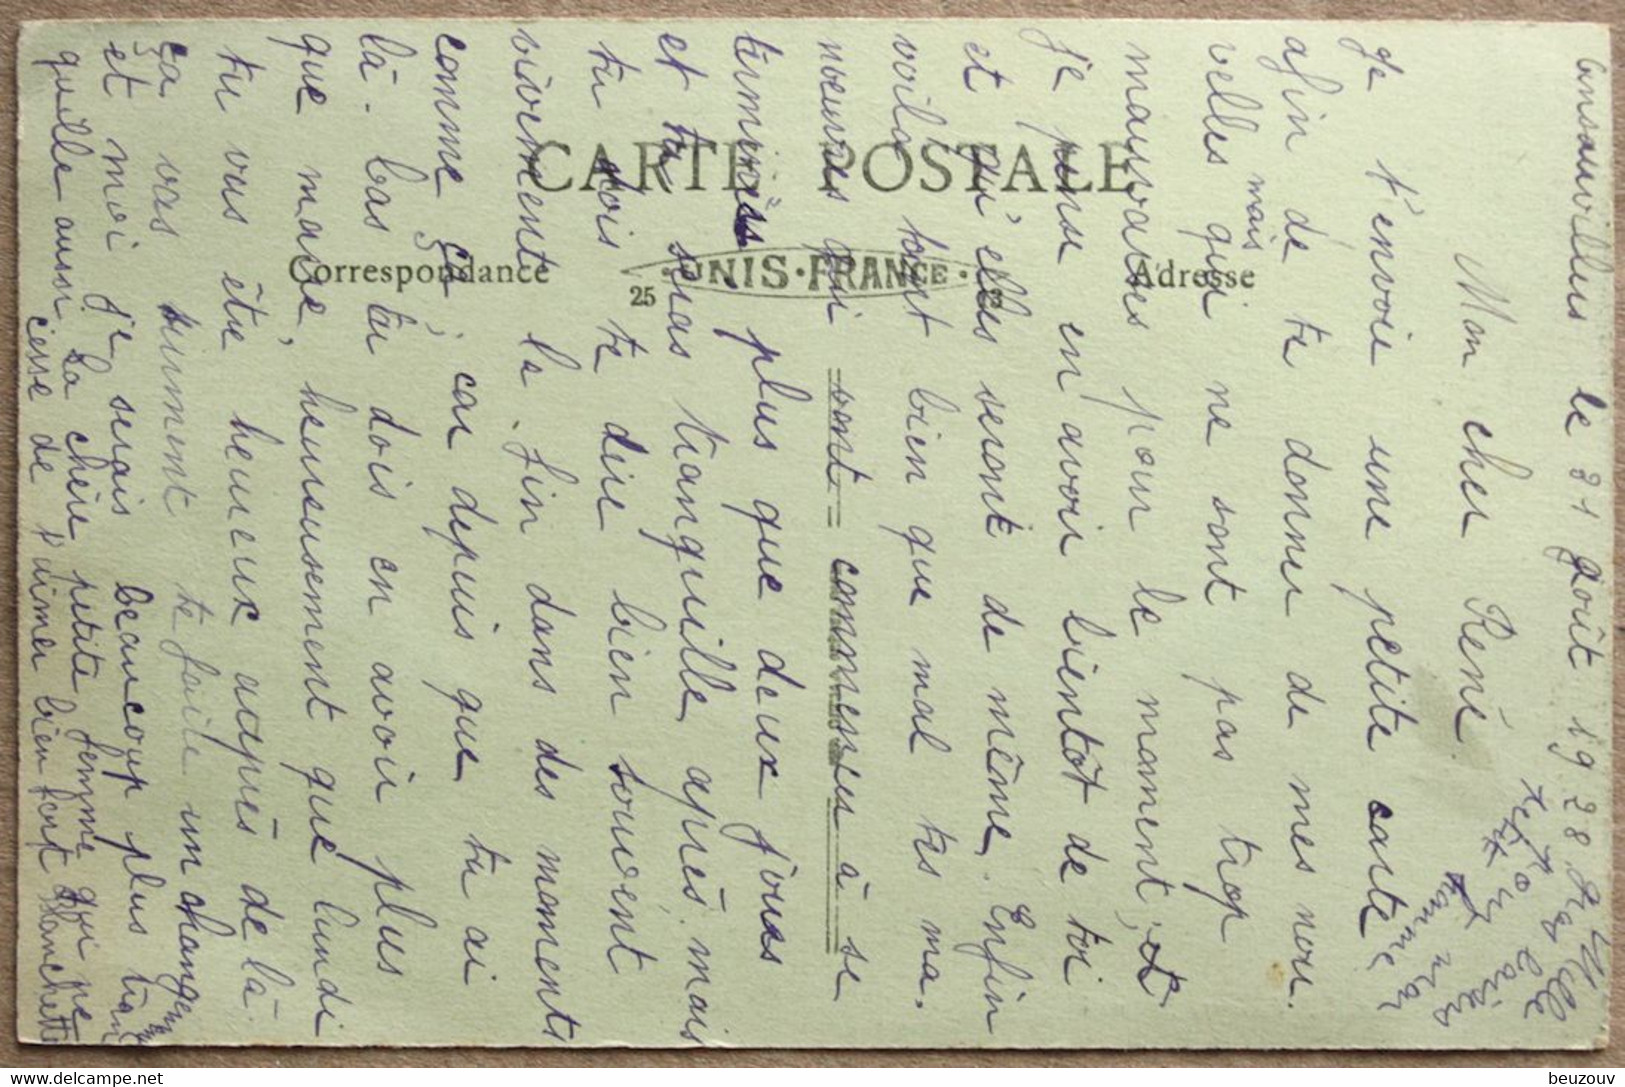 Ansauvillers le 31 Août 1928
Mon cher René
Je t'envoie une petite carte
afin de te donner de mes nou.
velles qui ne sont pas trop
mais
mauvaises pour le moment, et
je pense en avoir bientôt de toi
et qu'elles seront de même. Enfin
voila tout bien que mal tes ma.
noeuvres qui sont commensés à se
terminés plus que deux jours
et tu seras tranquille après. mais
tu dois te dire bien souvent
vivement la fin dans des moments
comme ça, car depuis que tu ai
là-bas tu dois en avoir plus
que marre, heureusement que lundi
tu vas être heureux auprès de la
ça vas surment te faire un changement
et moi je serais beaucoup plus tran
quille aussi. Ta chère petite femme qui ne
cesse de t'aimer bien fort Blanchette
Mille
baisers
CARTE POSTALE
Correspondance
25 UNIS-FRANCE
Adresse
beuzouv